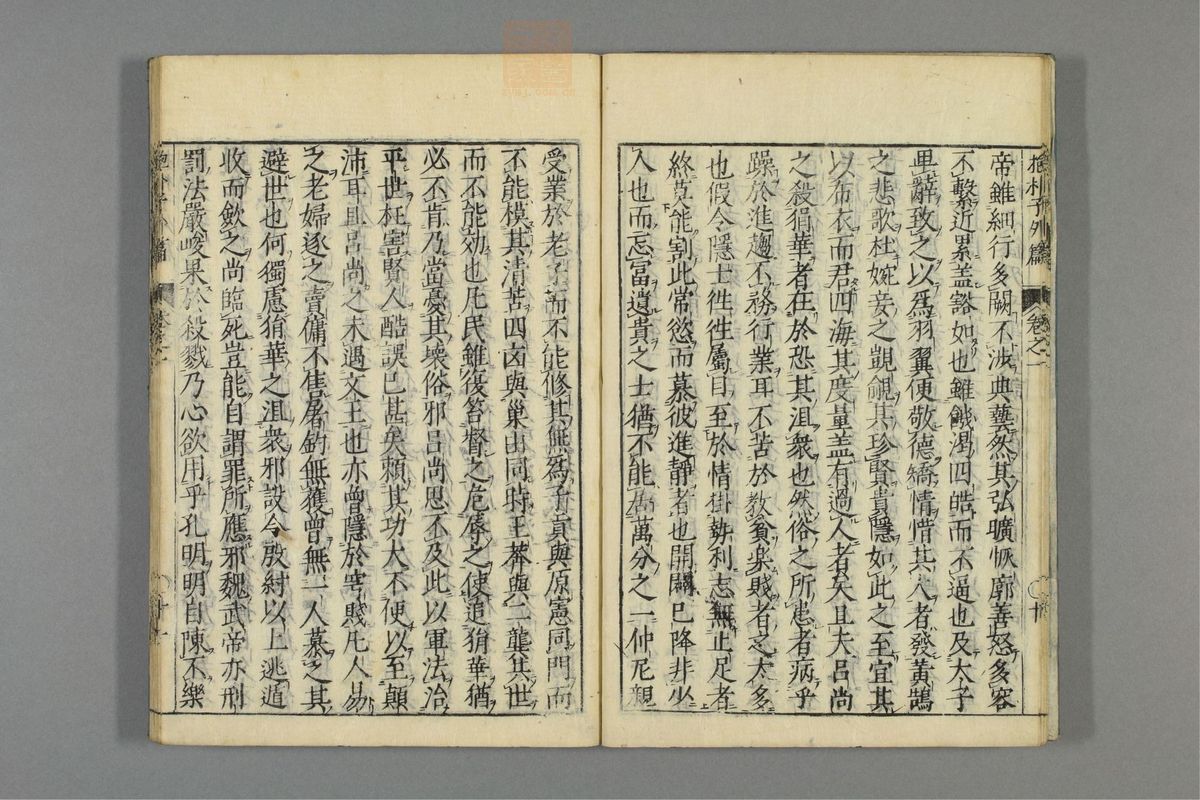 抱朴子外篇 卷之一 〇十
帝雖細行多闕不涉典藝然其弘曠恢廓善怒多容
不繫近累盖豁如也雖饑渴四皓而不逼也及太子
卑辭致之以爲羽翼便敬德矯情惜其大者發黃鵠
之悲歌杜婉妾之覬覦其珍賢貴隱如此之至宜其
以布衣而君四海其度量盖有過人者矣且夫呂尚
之殺狷華者在於恐其沮衆也然俗之所患者病乎
躁於進趨不務行業耳不苦於教貧樂賤者之太多
也假令隱士徃徃屬目至於情掛勢利志無止足者
終莫能割此常慾而慕彼進靜者也開闢已降非少
人也而忘冨遺貴之士猶不能居萬分之一仲尼親
受業於老子而不能修其無爲子貢與原憲同門而
不能模其清苦四凶與巢由同時王莽與二龔其世
而不能効也凡民雖復笞督之危辱之使追狷華猶
必不肯乃當憂其壞俗邪呂尚思不及此以軍法治
平世枉害賢人酷誤已甚矣頼其功大不便以至顛
沛耳且呂尚之未遇文王也亦曾隱於窂賤凡人易
之老婦逐之賣傭不售屠釣無獲曾無一人慕之其
避世也何獨慮狷華之沮衆邪設令殷紂以上逃遁
收而歛之尚臨死豈能自謂罪所應邪魏武帝亦刑
罰法嚴峻果於殺戮乃心欲用乎孔明明自陳不樂